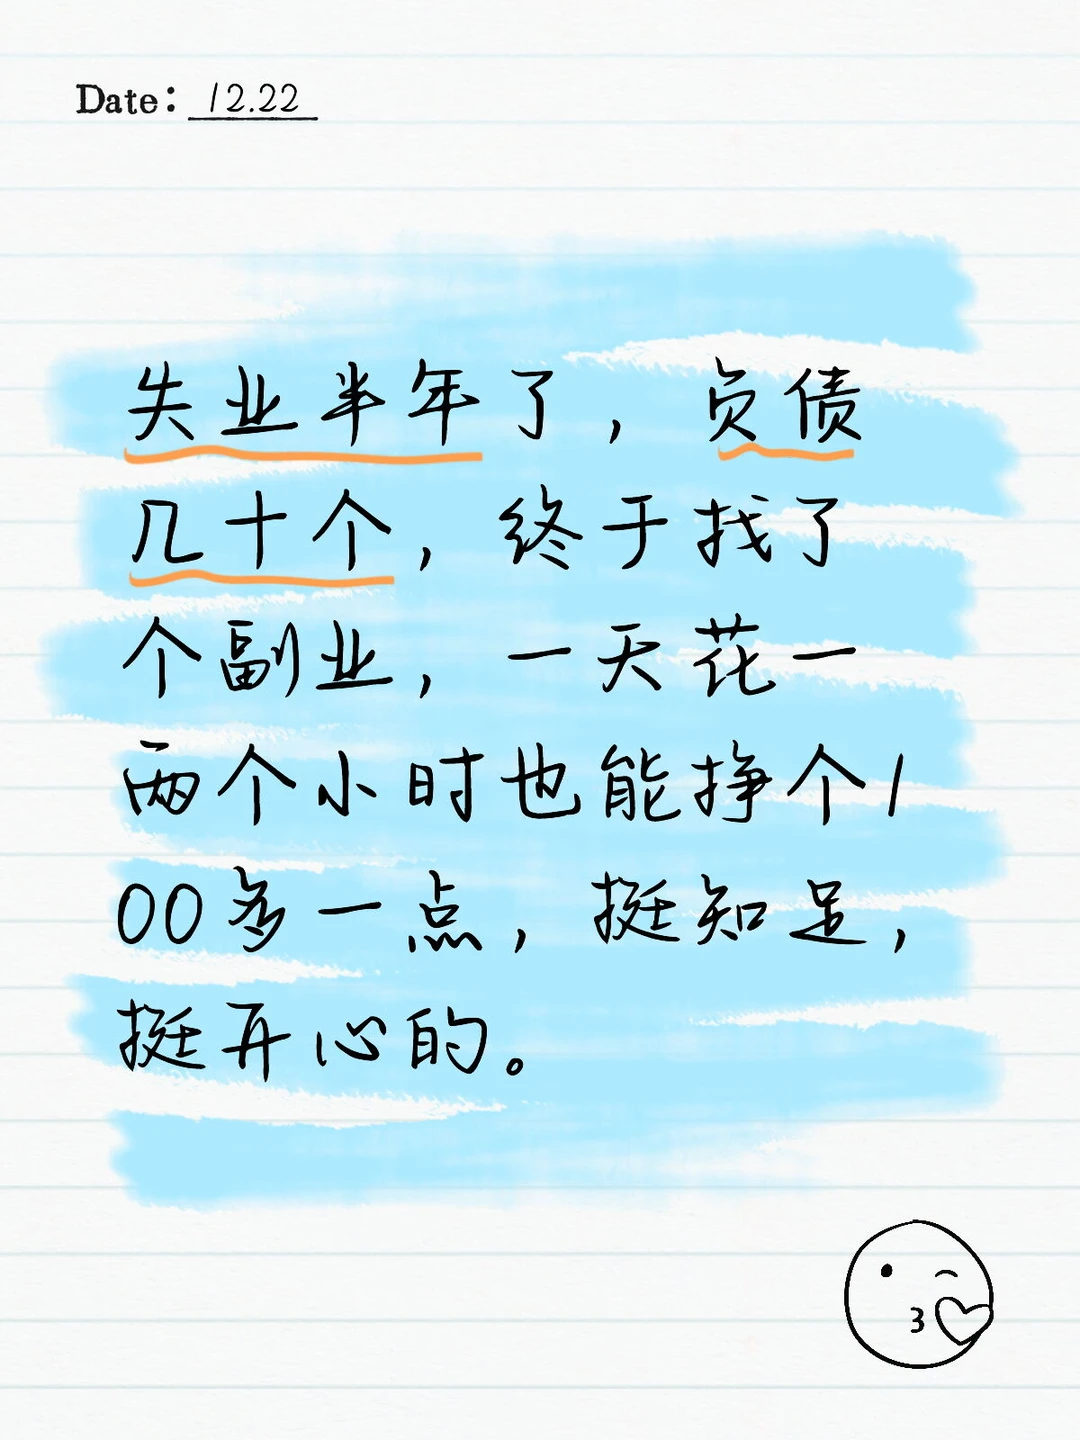 Date: 12.22
失业半年了，负债
几十个，终于找了
个副业，一天花一
两个小时也能挣个1
00多一点，挺知足，
挺开心的。